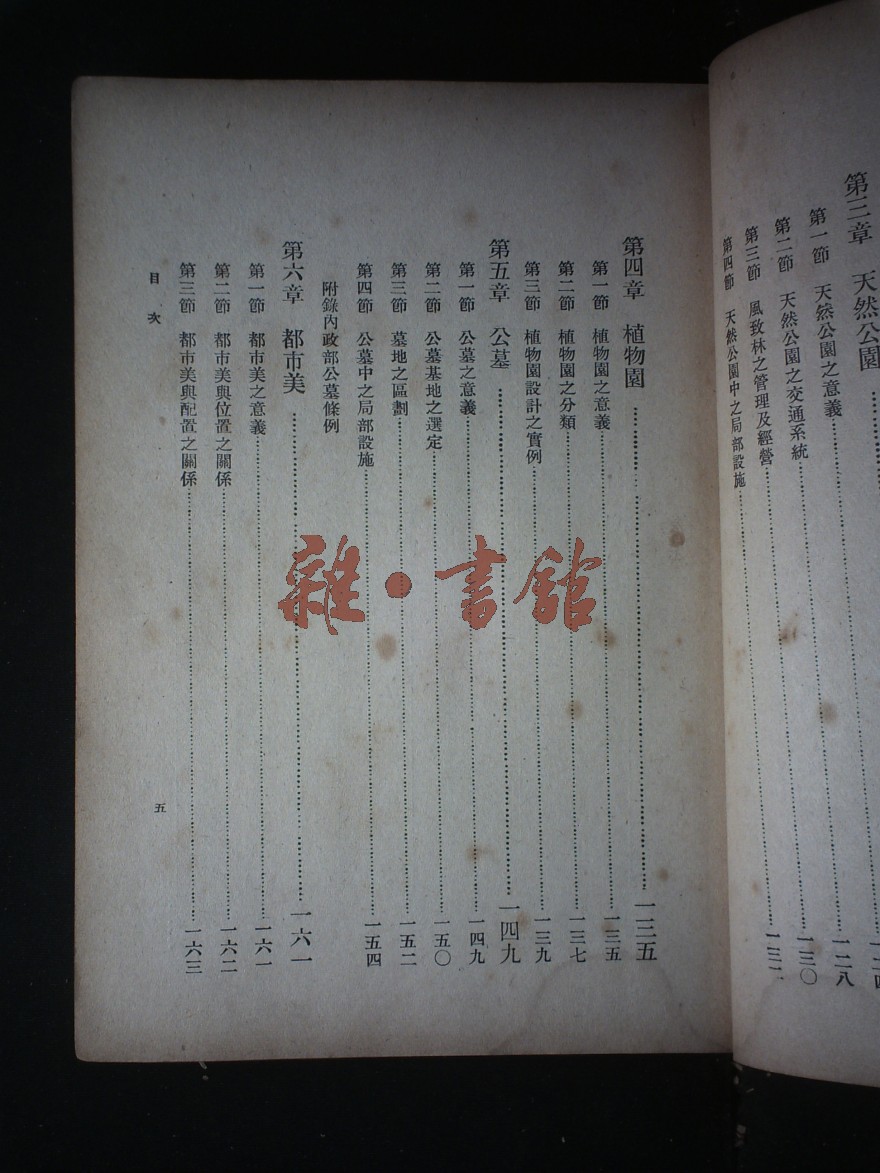 第三章　天然公園
第一節　天然公園之意義 一二八
第二節　天然公園之交通系統 一三〇
第三節　風致林之管理及經營
第四節　天然公園中之局部設施
第四章　植物園 一三五
第一節　植物園之意義 一三五
第二節　植物園之分類 一三七
第三節　植物園設計之實例 一三九
第五章　公墓 一四九
第一節　公墓之意義 一四九
第二節　公墓基地之選定 一五〇
第三節　墓地之區劃 一五二
第四節　公墓中之局部設施 一五四
附錄內政部公墓條例
第六章　都市美 一六一
第一節　都市美之意義 一六一
第二節　都市美與位置之關係 一六二
第三節　都市美與配置之關係 一六三
目次
五
雜·書館